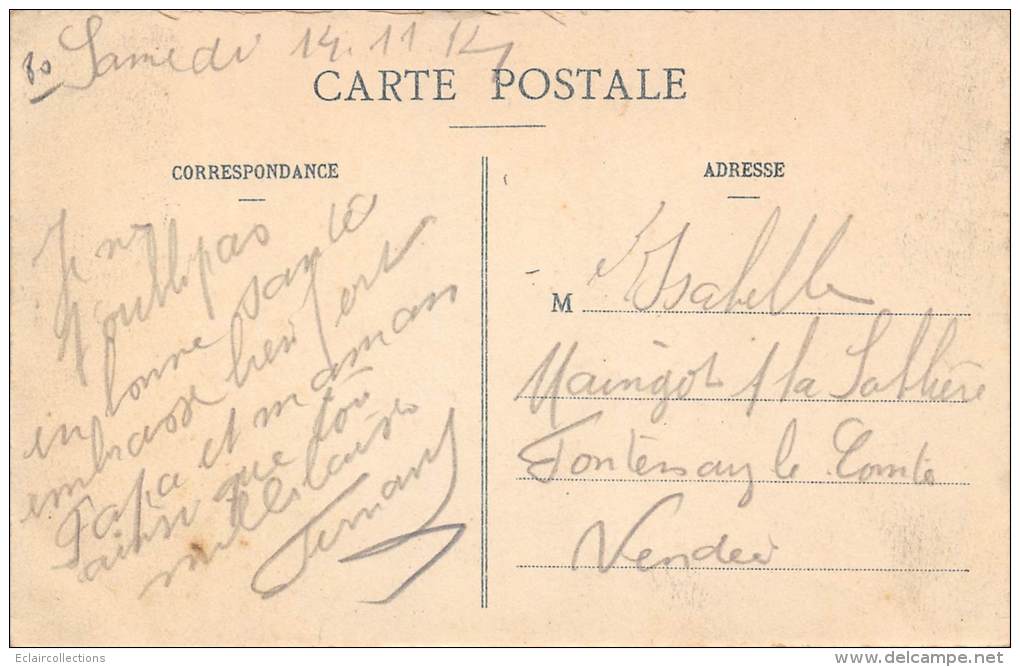 80 Samedi 14.11.14
CARTE POSTALE
CORRESPONDANCE
Je ne
t'oubli pas
en bonne santé
embrasse bien fort
Papa et maman
ainsi que toi
mille baisers
Fernand
ADRESSE
M Isabelle
Maingot / la Sablière
Fontenay le Comte
Vendée
Eclaircollections
delcampe.net